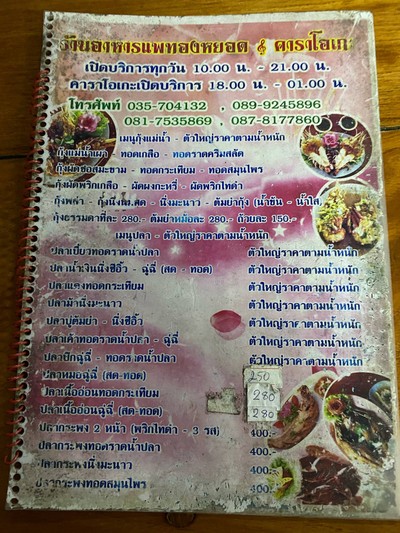 ร้านอาหารแพทองหยอด & คาราโอเกะ
เปิดบริการทุกวัน 10.00 น. - 21.00 น.
คาราโอเกะเปิดบริการ 18.00 น. - 01.00 น.
โทรศัพท์ 035-704132 , 089-9245896
081-7535869 , 087-8177860
เมนูกุ้งแม่น้ำ - ตัวใหญ่ราคาตามน้ำหนัก
กุ้งแม่น้ำเผา - ทอดเกลือ - ทอดราดครีมสลัด
กุ้งผัดซอสมะขาม - ทอดกระเทียม - ทอดสมุนไพร
กุ้งผัดพริกเกลือ - ผัดผงกะหรี่ - ผัดพริกไทดำ
กุ้งพล่า - กุ้งนึ่งนม.สด - นึ่งมะนาว - ต้มยำกุ้ง (น้ำข้น - น้ำใส)
กุ้งธรรมดาที่ละ 280.- ต้มยำหม้อละ 280.- ถ้วยละ 150.-
เมนูปลา - ตัวใหญ่ราคาตามน้ำหนัก
ปลาเบี้ยวทอดราดน้ำปลา ตัวใหญ่ราคาตามน้ำหนัก
ปลาน้ำเงินนึ่งซีอิ๊ว - ฉู่ฉี่ (สด - ทอด) ตัวใหญ่ราคาตามน้ำหนัก
ปลาแดงทอดกระเทียม ตัวใหญ่ราคาตามน้ำหนัก
ปลาม้านึ่งมะนาว ตัวใหญ่ราคาตามน้ำหนัก
ปลาบู่ต้มยำ - นึ่งซีอิ๊ว ตัวใหญ่ราคาตามน้ำหนัก
ปลาเค้าทอดราดน้ำปลา - ฉู่ฉี่ ตัวใหญ่ราคาตามน้ำหนัก
ปลาบึกฉู่ฉี่ - ทอดราดน้ำปลา ตัวใหญ่ราคาตามน้ำหนัก
ปลาหมอฉู่ฉี่ (สด-ทอด) 250
ปลาเนื้ออ่อนทอดกระเทียม 280
ปลาเนื้ออ่อนฉู่ฉี่ (สด-ทอด) 280
ปลากระพง 2 หน้า (พริกไทดำ - 3 รส) 400.-
ปลากระพงทอดราดน้ำปลา 400.-
ปลากระพงนึ่งมะนาว 400.-
ปลากระพงทอดสมุนไพร 400.-